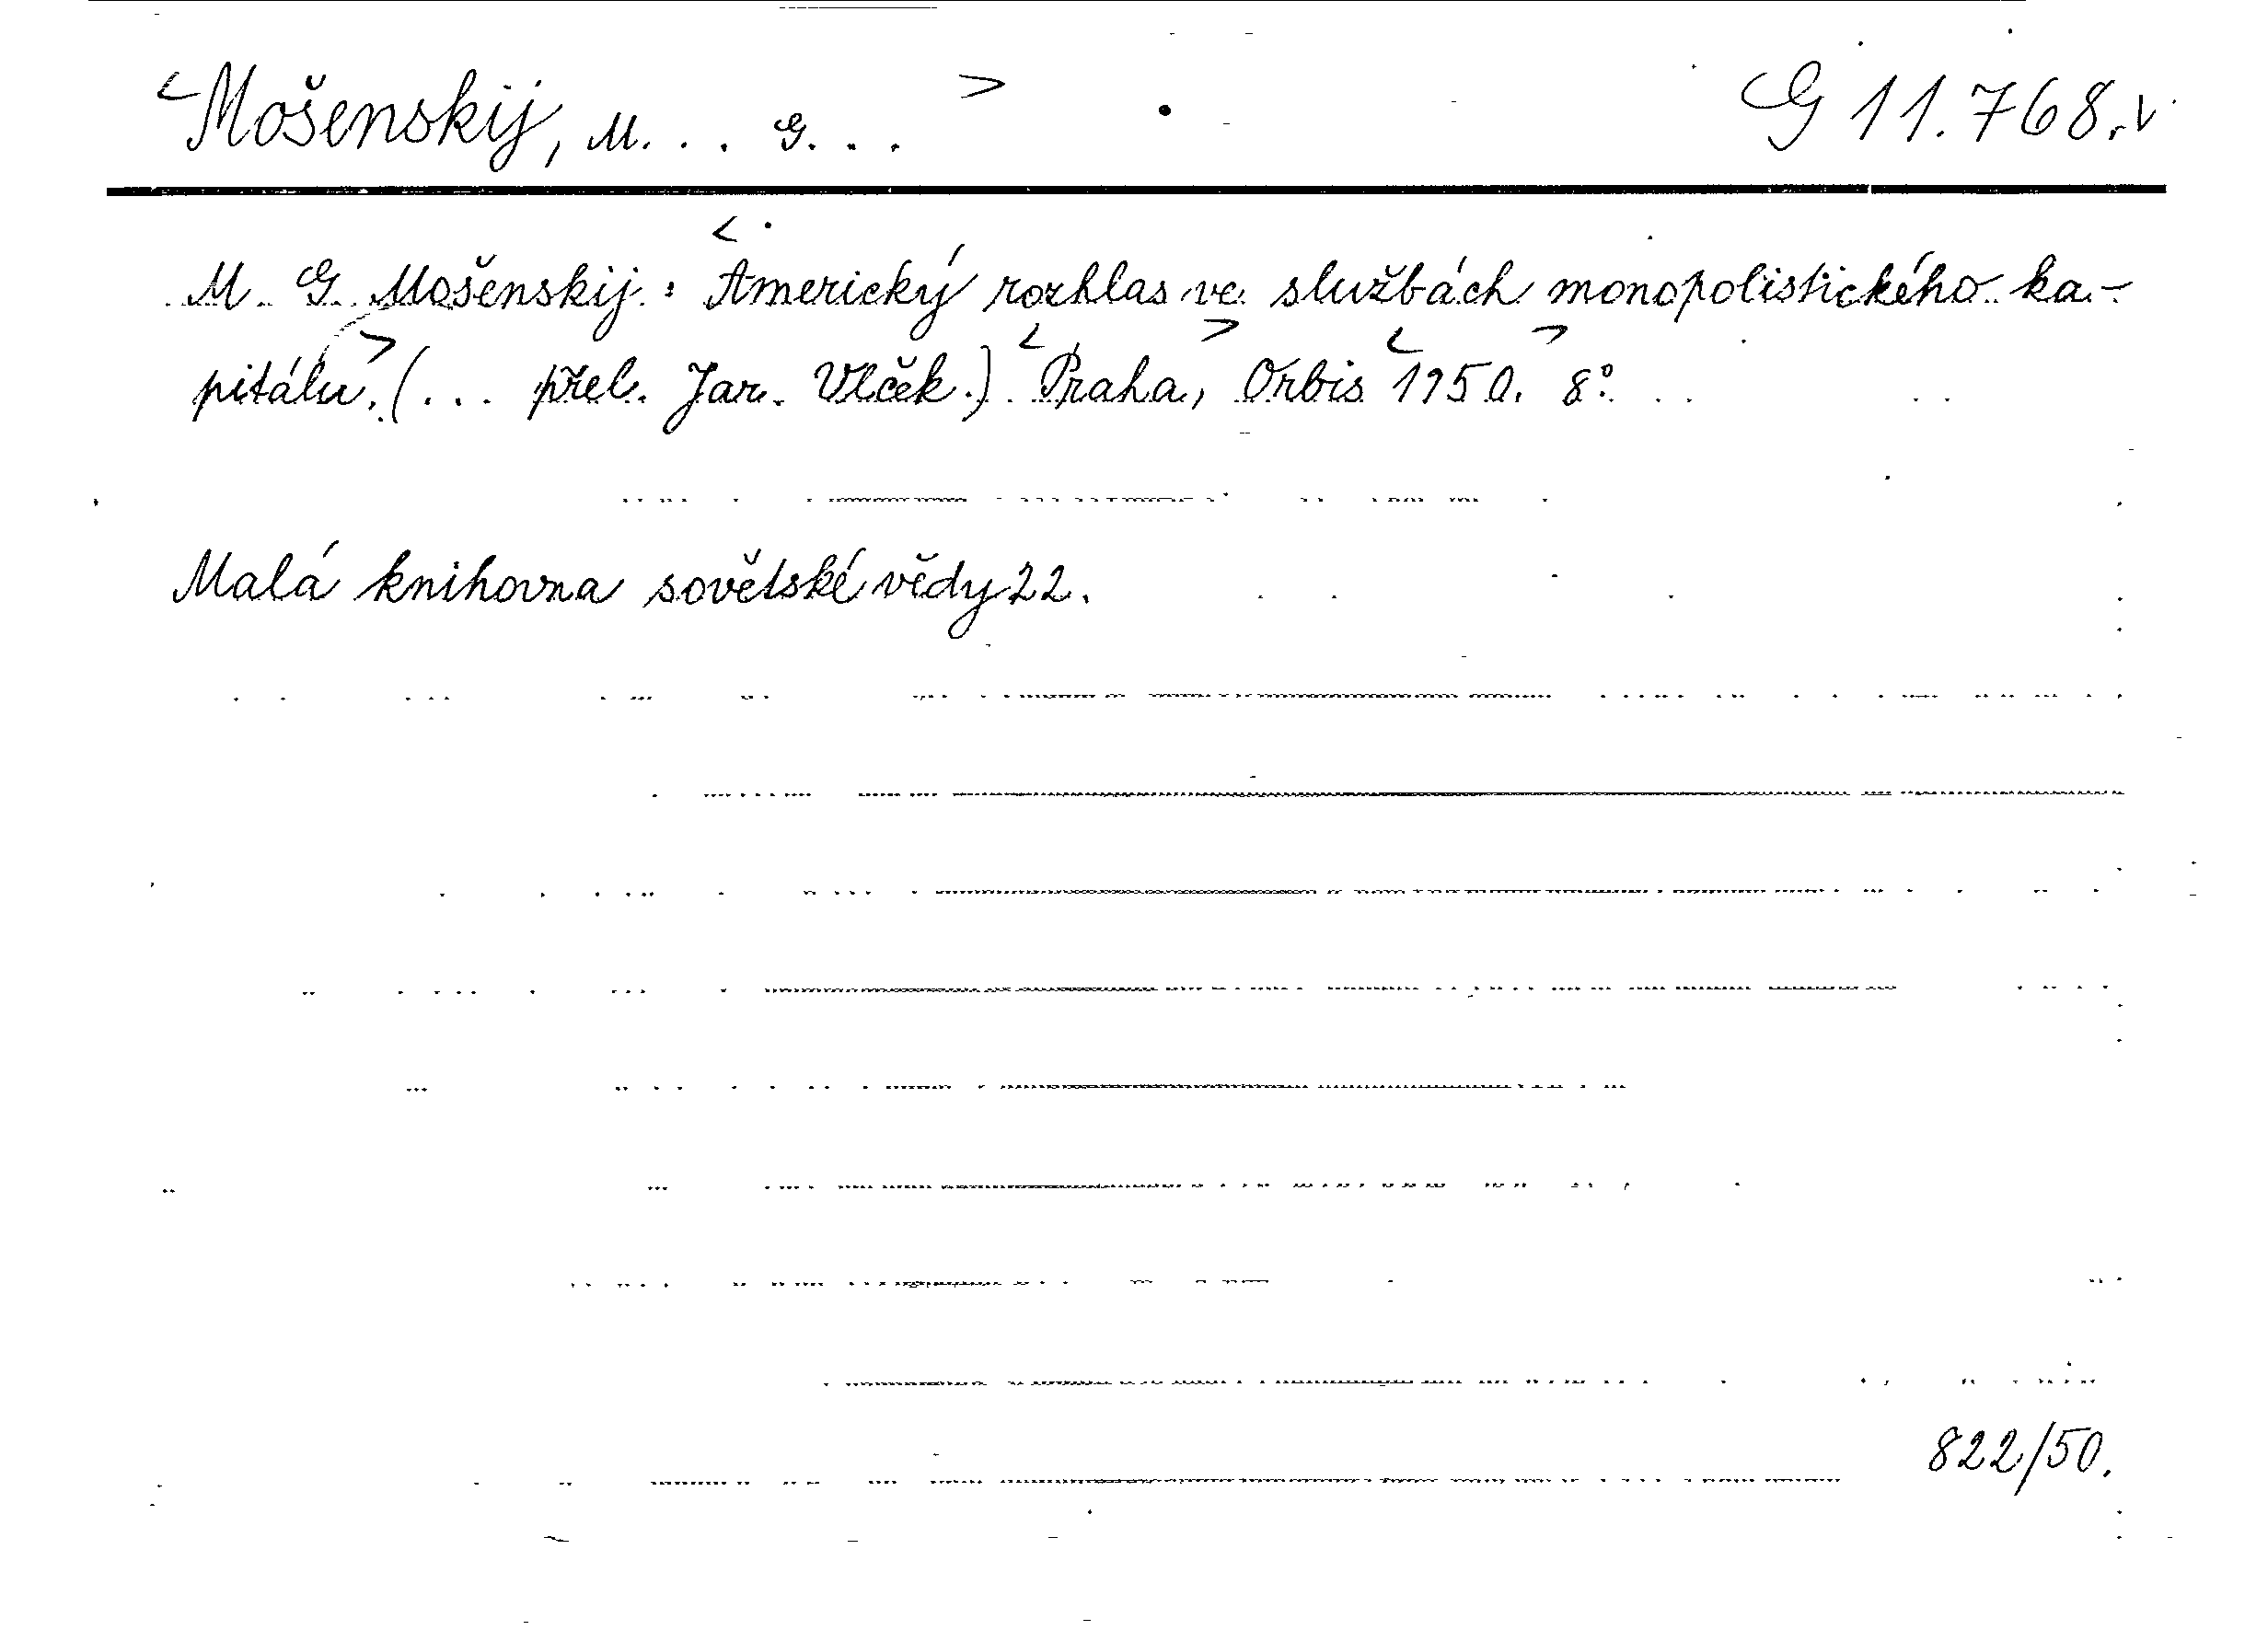 <Mošenskij, M... G...> G 11.768.v
M. G. Mošenskij: <Americký rozhlas ve službách monopolistického ka-
pitálu.> (... přel. Jar. Vlček.) <Praha,> Orbis <1950.> 8°.
Malá knihovna sovětské vědy 22.
822/50.